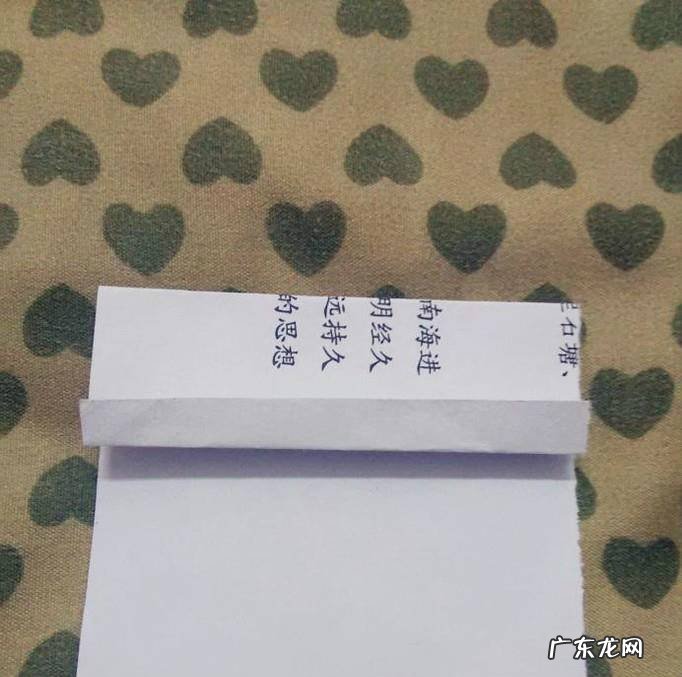 石塘、
南海进
明经久
远持久
的思想
广东龙网